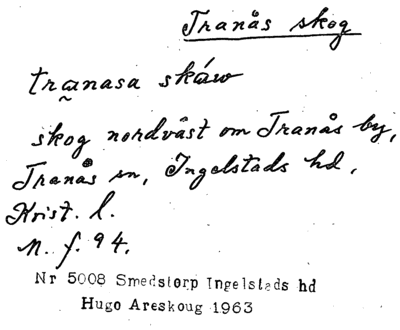 Tranås skog
tra̰nasa skáw
skog nordväst om Tranås by,
Tranås sn, Ingelstads hd,
Krist. l.
M. f. 94.
Nr 5008 Smedstorp Ingelstads hd
Hugo Areskoug 1963